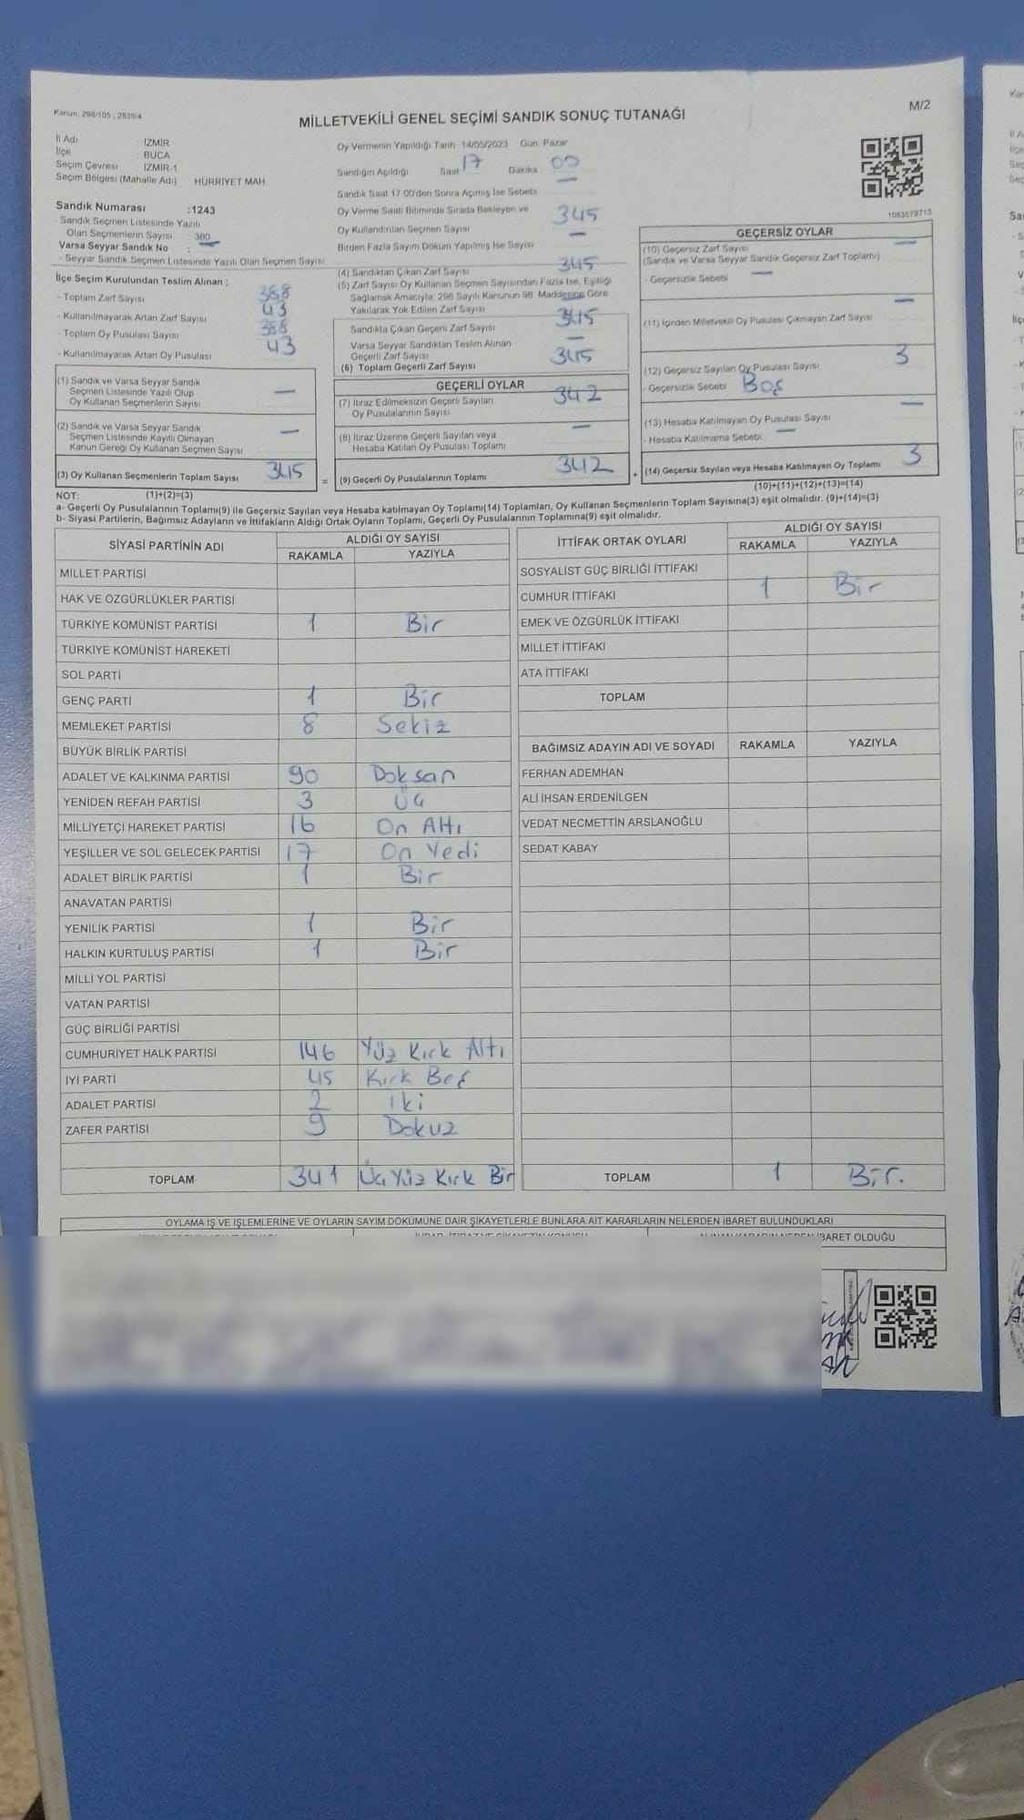 Kanun: 298/105 , 2839/4
M/2
MİLLETVEKİLİ GENEL SEÇİMİ SANDIK SONUÇ TUTANAĞI
İl Adı İZMİR
İlçe BUCA
Seçim Çevresi İZMİR-1
Seçim Bölgesi (Mahalle Adı) HÜRRİYET MAH.
Sandık Numarası :1243
Sandık Seçmen Listesinde Yazılı
Olan Seçmenlerin Sayısı 380
Varsa Seyyar Sandık No : —
- Seyyar Sandık Seçmen Listesinde Yazılı Olan Seçmen Sayısı
İlçe Seçim Kurulundan Teslim Alınan ;
- Toplam Zarf Sayısı 388
- Kullanılmayarak Artan Zarf Sayısı 43
- Toplam Oy Pusulası Sayısı 388
- Kullanılmayarak Artan Oy Pusulası 43
(1) Sandık ve Varsa Seyyar Sandık
Seçmen Listesinde Yazılı Olup
Oy Kullanan Seçmenlerin Sayısı —
(2) Sandık ve Varsa Seyyar Sandık
Seçmen Listesinde Kayıtlı Olmayan
Kanun Gereği Oy Kullanan Seçmen Sayısı —
(3) Oy Kullanan Seçmenlerin Toplam Sayısı 345
Oy Vermenin Yapıldığı Tarih 14/05/2023 Gün Pazar
Sandığın Açıldığı Saat 17 Dakika 00
Sandık Saat 17:00'den Sonra Açılmış İse Sebebi —
Oy Verme Saati Bitiminde Sırada Bekleyen ve
Oy Kullandırılan Seçmen Sayısı 345
Birden Fazla Sayım Döküm Yapılmış İse Sayısı —
(4) Sandıktan Çıkan Zarf Sayısı 345
(5) Zarf Sayısı Oy Kullanan Seçmen Sayısından Fazla İse, Eşitliği
Sağlamak Amacıyla; 298 Sayılı Kanunun 98. Maddesine Göre
Yakılarak Yok Edilen Zarf Sayısı —
Sandıkta Çıkan Geçerli Zarf Sayısı 345
Varsa Seyyar Sandıktan Teslim Alınan
Geçerli Zarf Sayısı —
(6) Toplam Geçerli Zarf Sayısı 345
GEÇERLİ OYLAR
(7) İtiraz Edilmeksizin Geçerli Sayılan
Oy Pusulalarının Sayısı 342
(8) İtiraz Üzerine Geçerli Sayılan veya
Hesaba Katılan Oy Pusulası Toplamı —
= (9) Geçerli Oy Pusulalarının Toplamı 342
1083579713
GEÇERSİZ OYLAR
(10) Geçersiz Zarf Sayısı —
(Sandık ve Varsa Seyyar Sandık Geçersiz Zarf Toplamı)
- Geçersizlik Sebebi —
(11) İçinden Milletvekili Oy Pusulası Çıkmayan Zarf Sayısı —
(12) Geçersiz Sayılan Oy Pusulası Sayısı 3
- Geçersizlik Sebebi Boş
(13) Hesaba Katılmayan Oy Pusulası Sayısı —
- Hesaba Katılmama Sebebi —
+ (14) Geçersiz Sayılan veya Hesaba Katılmayan Oy Toplamı 3
NOT: (1)+(2)=(3)
(10)+(11)+(12)+(13)=(14)
a- Geçerli Oy Pusulalarının Toplamı(9) ile Geçersiz Sayılan veya Hesaba Katılmayan Oy Toplamı(14) Toplamları, Oy Kullanan Seçmenlerin Toplam Sayısına(3) eşit olmalıdır. (9)+(14)=(3)
b- Siyasi Partilerin, Bağımsız Adayların ve İttifakların Aldığı Ortak Oyların Toplamı, Geçerli Oy Pusulalarının Toplamına(9) eşit olmalıdır.
SİYASİ PARTİNİN ADI ALDIĞI OY SAYISI
RAKAMLA YAZIYLA
MİLLET PARTİSİ
HAK VE ÖZGÜRLÜKLER PARTİSİ
TÜRKİYE KOMÜNİST PARTİSİ 1 Bir
TÜRKİYE KOMÜNİST HAREKETİ
SOL PARTİ
GENÇ PARTİ 1 Bir
MEMLEKET PARTİSİ 8 Sekiz
BÜYÜK BİRLİK PARTİSİ
ADALET VE KALKINMA PARTİSİ 90 Doksan
YENİDEN REFAH PARTİSİ 3 Üç
MİLLİYETÇİ HAREKET PARTİSİ 16 On Altı
YEŞİLLER VE SOL GELECEK PARTİSİ 17 On Yedi
ADALET BİRLİK PARTİSİ 1 Bir
ANAVATAN PARTİSİ
YENİLİK PARTİSİ 1 Bir
HALKIN KURTULUŞ PARTİSİ 1 Bir
MİLLİ YOL PARTİSİ
VATAN PARTİSİ
GÜÇ BİRLİĞİ PARTİSİ
CUMHURİYET HALK PARTİSİ 146 Yüz Kırk Altı
İYİ PARTİ 45 Kırk Beş
ADALET PARTİSİ 2 İki
ZAFER PARTİSİ 9 Dokuz
TOPLAM 341 Üç Yüz Kırk Bir
İTTİFAK ORTAK OYLARI ALDIĞI OY SAYISI
RAKAMLA YAZIYLA
SOSYALİST GÜÇ BİRLİĞİ İTTİFAKI
CUMHUR İTTİFAKI 1 Bir
EMEK VE ÖZGÜRLÜK İTTİFAKI
MİLLET İTTİFAKI
ATA İTTİFAKI
TOPLAM
BAĞIMSIZ ADAYIN ADI VE SOYADI RAKAMLA YAZIYLA
FERHAN ADEMHAN
ALİ İHSAN ERDENİLGEN
VEDAT NECMETTİN ARSLANOĞLU
SEDAT KABAY
TOPLAM 1 Bir.
OYLAMA İŞ VE İŞLEMLERİNE VE OYLARIN SAYIM DÖKÜMÜNE DAİR ŞİKAYETLERLE BUNLARA AİT KARARLARIN NELERDEN İBARET BULUNDUKLARI
İBARET OLDUĞU